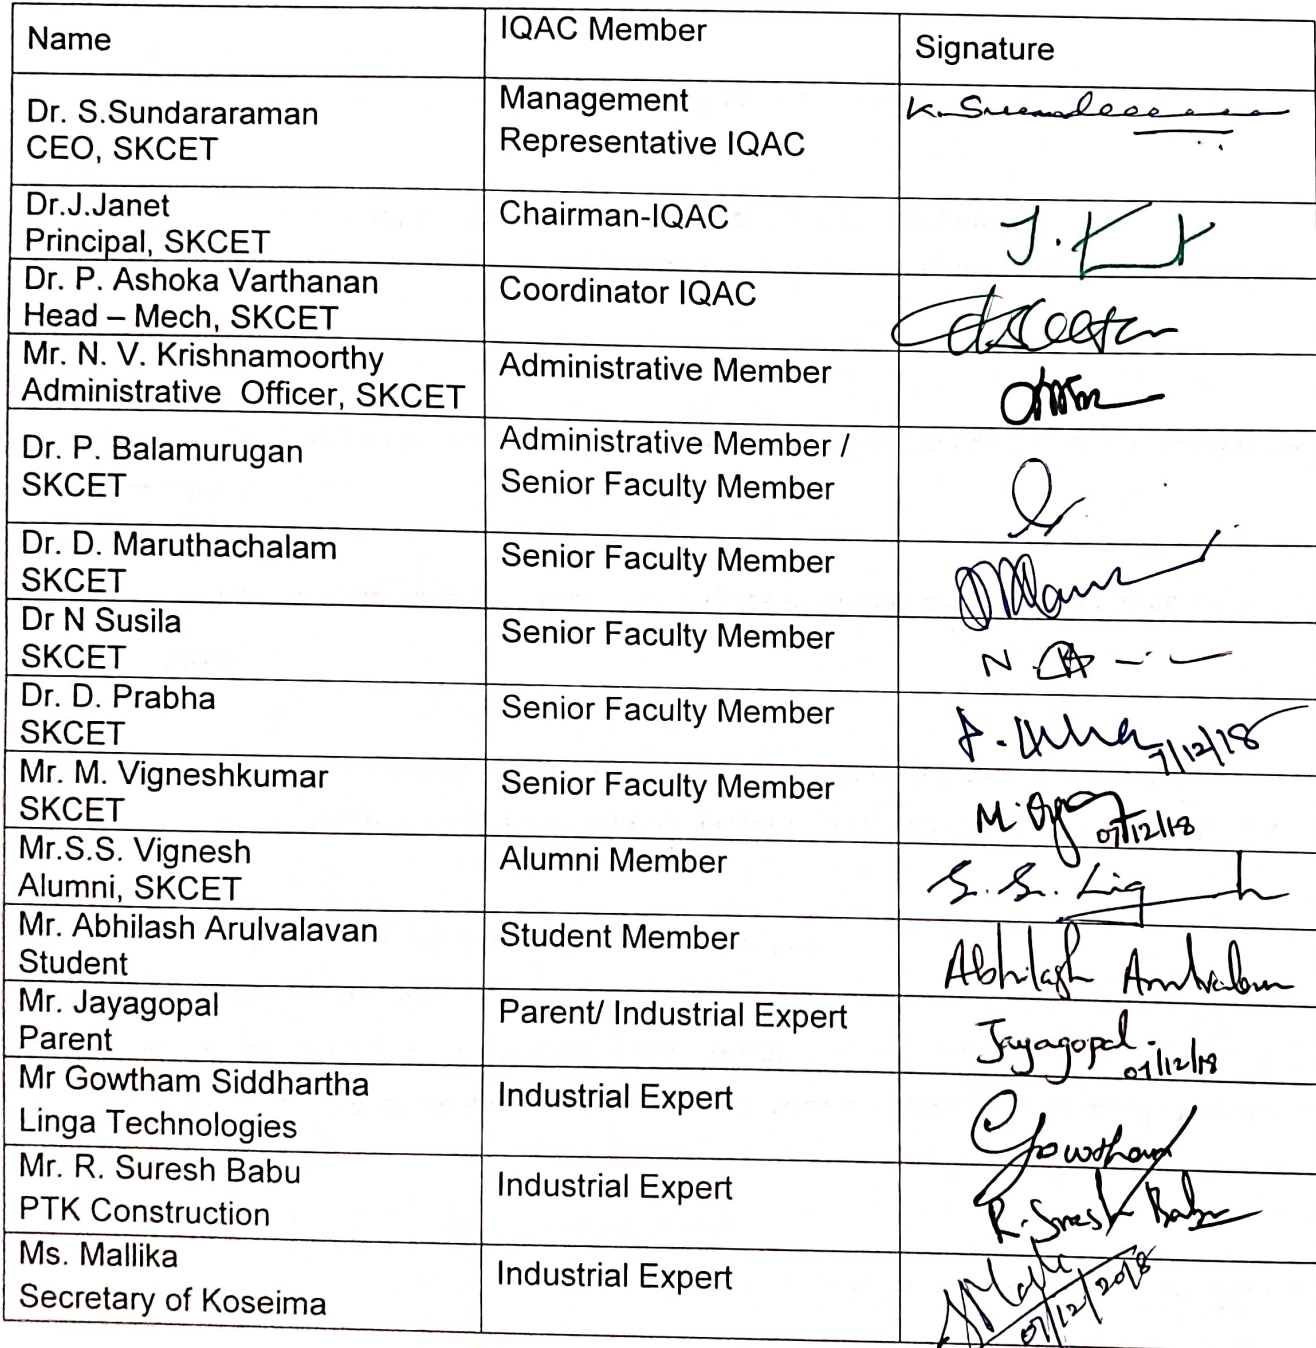 Name
IQAC Member
Signature
Dr. S.Sundararaman
CEO, SKCET
Management
Representative IQAC
Dr.J.Janet
Principal, SKCET
Chairman-IQAC
Dr. P. Ashoka Varthanan
Head – Mech, SKCET
Coordinator IQAC
Mr. N. V. Krishnamoorthy
Administrative Officer, SKCET
Administrative Member
Dr. P. Balamurugan
SKCET
Administrative Member /
Senior Faculty Member
Dr. D. Maruthachalam
SKCET
Senior Faculty Member
Dr N Susila
SKCET
Senior Faculty Member
N.
Dr. D. Prabha
SKCET
Senior Faculty Member
7/12/18
Mr. M. Vigneshkumar
SKCET
Senior Faculty Member
07/12/18
Mr.S.S. Vignesh
Alumni, SKCET
Alumni Member
S. S.
Mr. Abhilash Arulvalavan
Student
Student Member
Abhilash Arulvalavan
Mr. Jayagopal
Parent
Parent/ Industrial Expert
Jayagopal
07/12/18
Mr Gowtham Siddhartha
Linga Technologies
Industrial Expert
Gowtham
Mr. R. Suresh Babu
PTK Construction
Industrial Expert
R. Suresh Babu
Ms. Mallika
Secretary of Koseima
Industrial Expert
07/12/2018